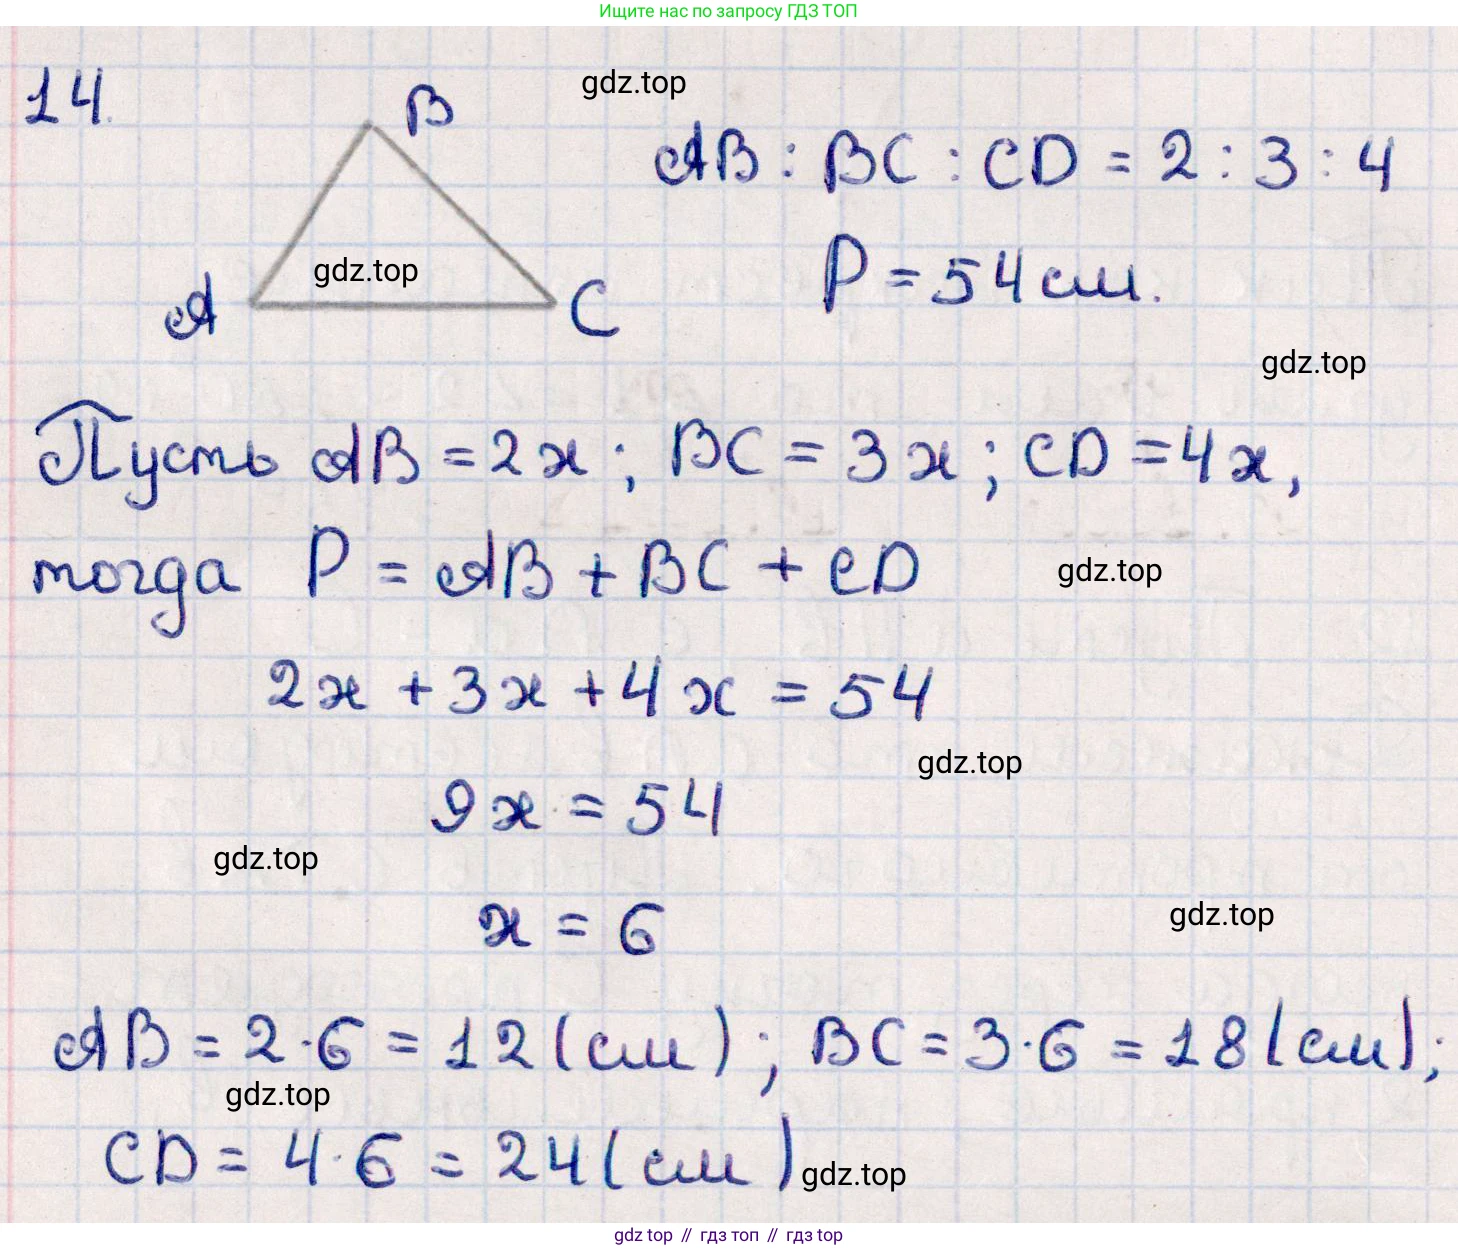 Ищите нас по запросу ГДЗ ТОП
14.
gdz.top
B
AB : BC : CD = 2 : 3 : 4
gdz.top
P = 54 см.
A
C
gdz.top
Пусть AB = 2x ; BC = 3x ; CD = 4x,
тогда P = AB + BC + CD
gdz.top
2x + 3x + 4x = 54
gdz.top
9x = 54
gdz.top
x = 6
gdz.top
AB = 2·6 = 12 (см) ; BC = 3·6 = 18 (см) ;
gdz.top
CD = 4·6 = 24 (см)
gdz.top
gdz top // гдз топ // гдз top